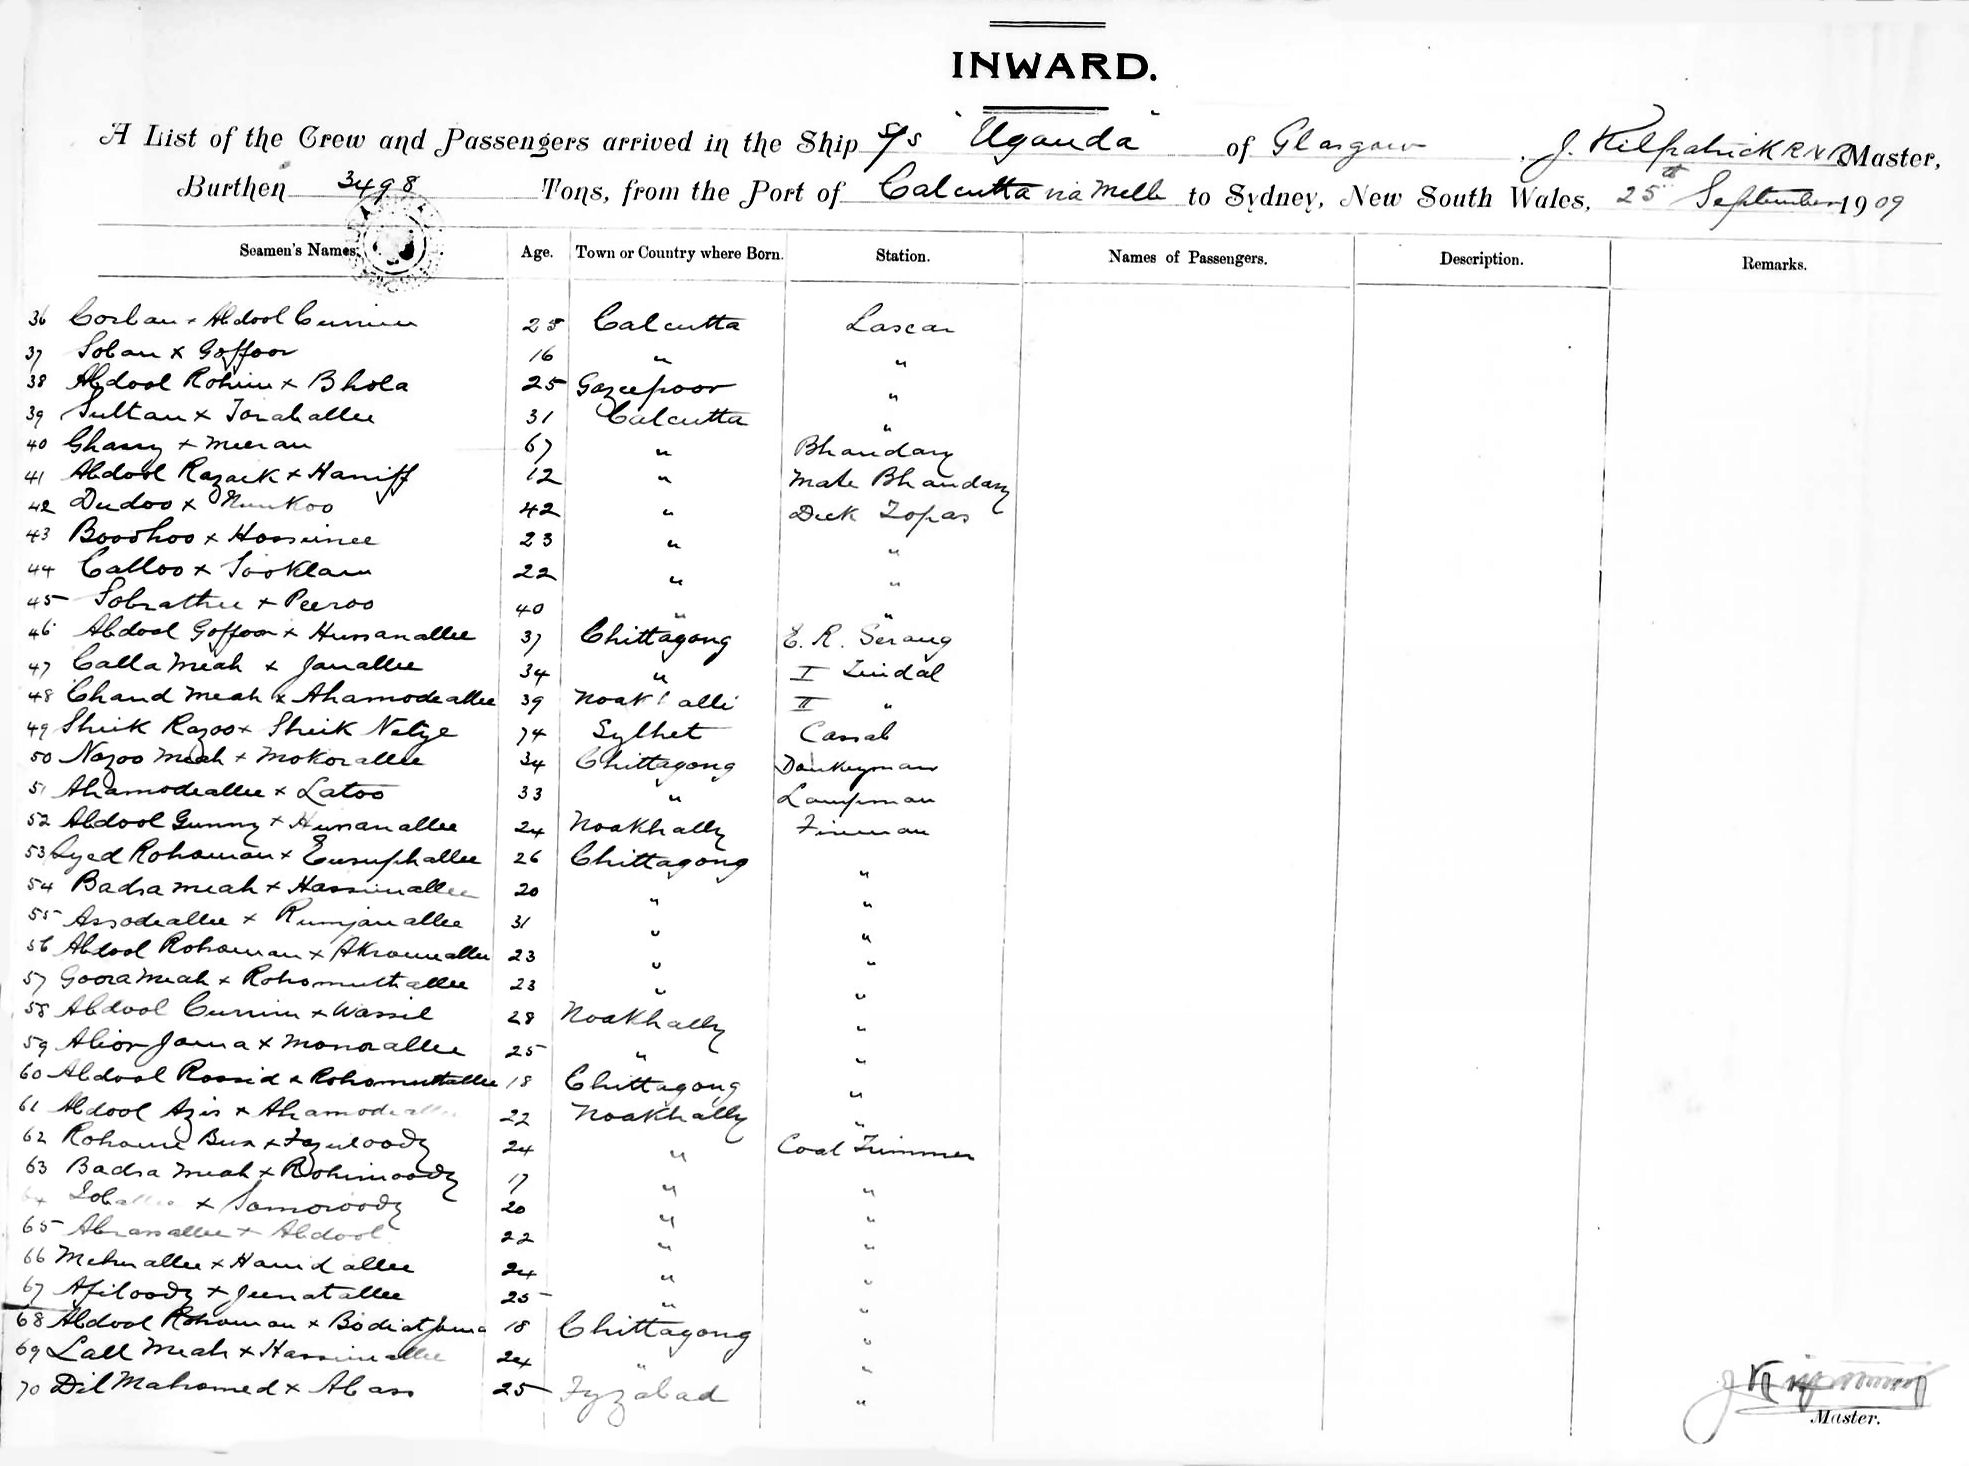 INWARD.
A List of the Crew and Passengers arrived in the Ship s/s "Uganda" of Glasgow, J. Kilpatrick R.N.R. Master,
Burthen 3498 Tons, from the Port of Calcutta via Melb to Sydney, New South Wales, 25th September 1909
Seamen's Names. Age. Town or Country where Born. Station. Names of Passengers. Description. Remarks.
36 Corban x Abdool Currim 25 Calcutta Lascar
37 Soban x Goffoor 16 " "
38 Abdool Rohim x Bhola 25 Gazeepoor "
39 Sultan x Toraballee 31 Calcutta "
40 Ghasny x Meeran 67 " Bhandary
41 Abdool Razack x Haniff 12 " Mate Bhandary
42 Dudoo x Nunkoo 42 " Deck Topas
43 Boodhoo x Hosseinee 23 " "
44 Calloo x Sooklam 22 " "
45 Sobrathee x Peeroo 40 " "
46 Abdool Goffoor x Hussanallee 37 Chittagong E. R. Serang
47 Calla Meah x Janallee 34 " I Tindal
48 Chand Meah x Ahamodeallee 39 Noakhalli II "
49 Sheik Razoo x Sheik Netye 74 Sylhet Cassab
50 Nazoo Meah x Mokorallee 34 Chittagong Donkeyman
51 Ahamodeallee x Latoo 33 " Lampman
52 Abdool Gunny x Hussanallee 24 Noakhally Fireman
53 Syed Rohoman x Eusuphallee 26 Chittagong "
54 Badsa Meah x Hassimallee 20 " "
55 Assodeallee x Rumjanallee 31 " "
56 Abdool Rohoman x Akromeallee 23 " "
57 Goora Meah x Rohomuthallee 23 " "
58 Abdool Currim x Wassil 28 Noakhally "
59 Alior Jama x Monorallee 25 " "
60 Abdool Rossid x Rohomuttallee 18 Chittagong "
61 Abdool Azis x Ahamodeallee 22 Noakhally "
62 Rohome Bux x Fazuloody 24 " Coal Trimmer
63 Badsa Meah x Rohimoody 17 " "
64 x Samoroody 20 " "
65 Abrasallee x Abdool 22 " "
66 Meherallee x Hamidallee 24 " "
67 Afiloody x Jeenatallee 25 " "
68 Abdool Rohoman x Bodiatjama 18 Chittagong "
69 Lall Meah x Hassimallee 24 " "
70 Dil Mahomed x Abass 25 Fyzabad "
Master.